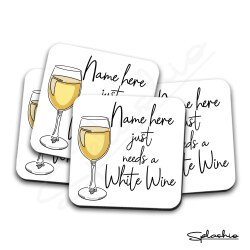 Name here
just
Name here
just
needs a
White Wine
Name here
needs a
White Wine
Splachio